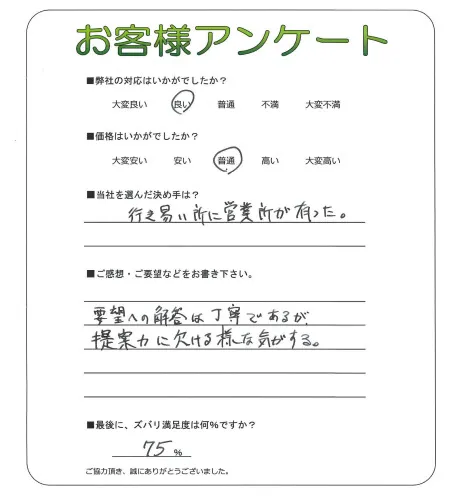 お客様アンケート
■弊社の対応はいかがでしたか？
大変良い 良い 普通 不満 大変不満
■価格はいかがでしたか？
大変安い 安い 普通 高い 大変高い
■当社を選んだ決め手は？
行き易い所に営業所が有った。
■ご感想・ご要望などをお書き下さい。
要望への解答は丁寧であるが、
提案力に欠ける様な気がする。
■最後に、ズバリ満足度は何％ですか？
75 %
ご協力頂き、誠にありがとうございました。